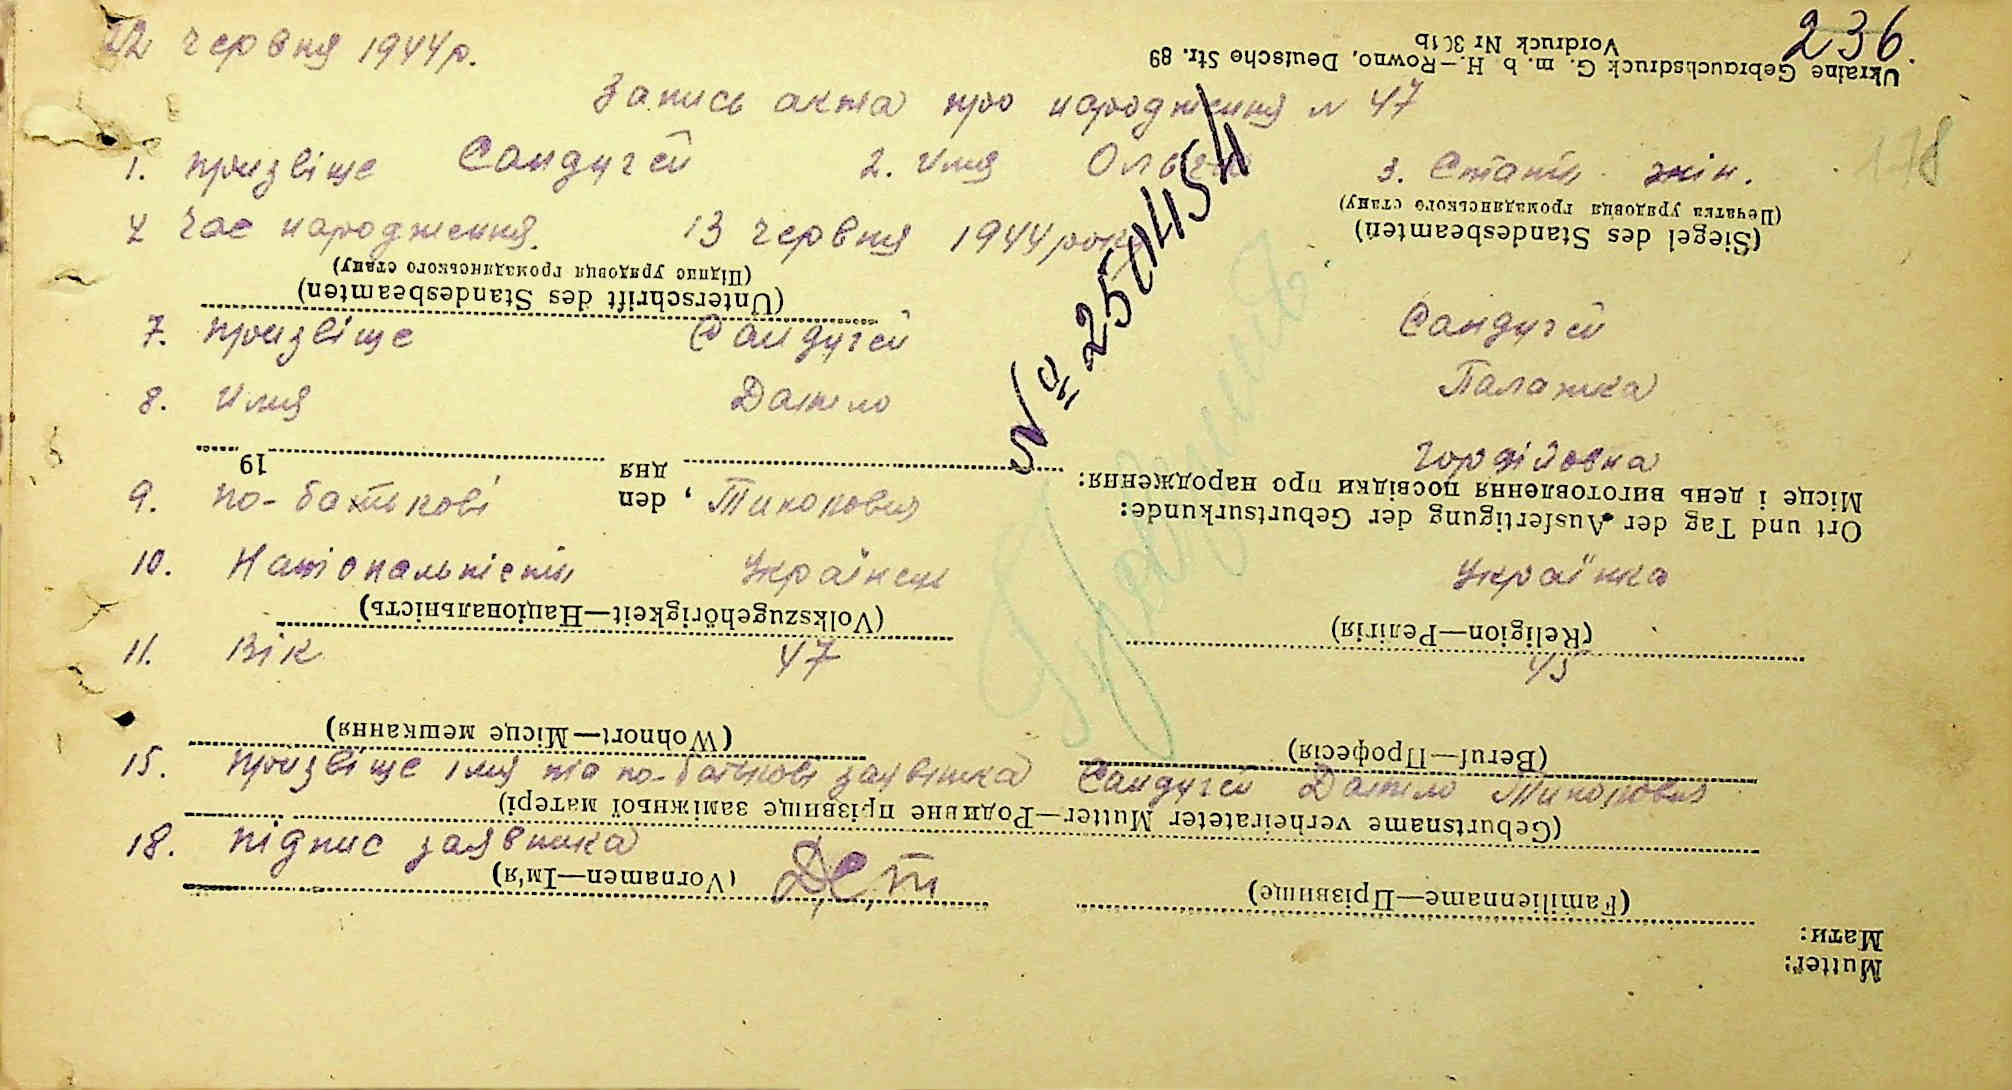 236.
22 червня 1944р.
Ukraine Gebrauchsdruck G. m. b. H.—Rowno, Deutsche Str. 89
Vordruck Nr 301b
Запись акта про народження N 47
178
1. призвіще Сандугей 2. имя Ольга 3. Стать жін.
(Печатка урядовця громадянського стану)
(Siegel des Standesbeamten)
4 час народження. 13 червня 1944 року
(Підпис урядовця громадянського стану)
(Unterschrift des Standesbeamten)
№ 250415
7. призвіще Сандугей Сандугей
8. имя Данило Палажка
Гордійовна
19 дня
9. по-батькові Тихонович
den
Місце і день виготовлення посвідки про народження:
Ort und Tag der Ausfertigung der Geburtsurkunde:
10. Національність Українець Українка
(Volkszugehörigkeit—Національність) (Religion—Релігія)
11. Вік 47 45
(Wohnort—Місце мешкання) (Beruf—Професія)
15. призвіще імя та по-батькові заявника Сандугей Данило Тихонович
(Geburtsname verheirateter Mutter—Родивне прізвище заміжньої матері)
18. підпис заявника
(Vornamen—Ім'я) (Familienname—Прізвище)
Мати:
Mutter: